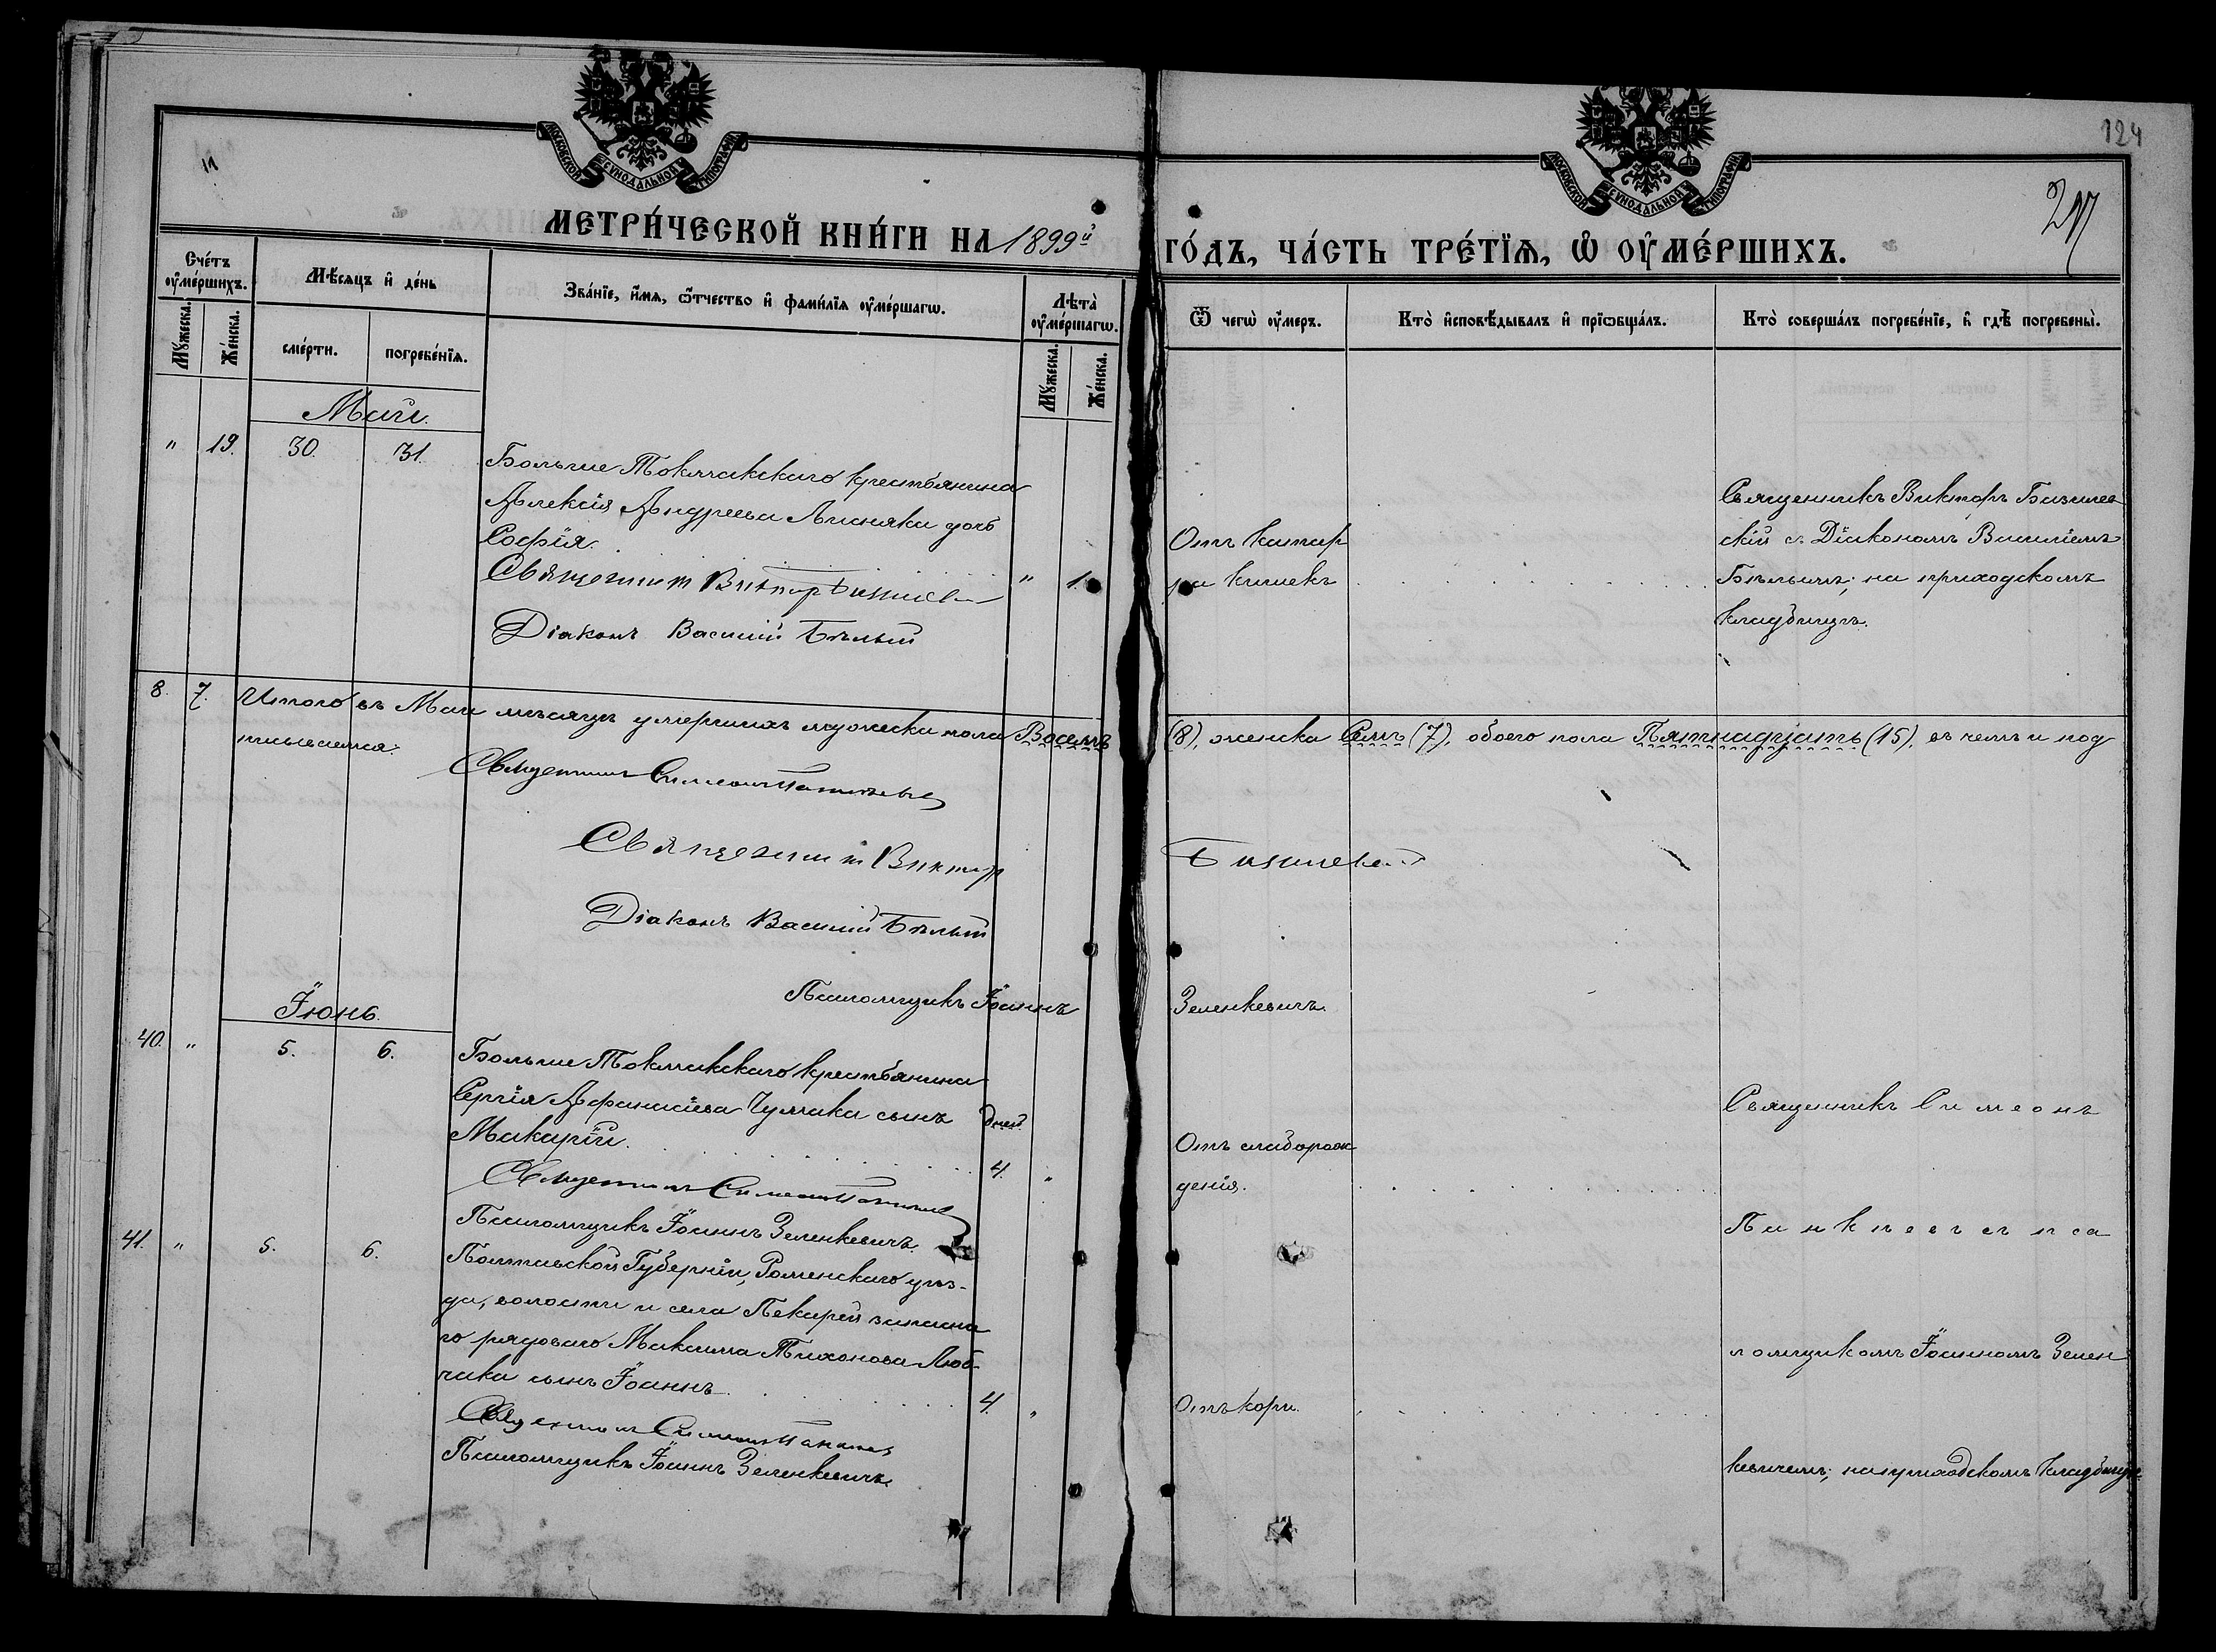 124
217
МОСКОВСКОЙ СѴНОДАЛЬНОЙ ТИПОГРАФІИ
МОСКОВСКОЙ СѴНОДАЛЬНОЙ ТИПОГРАФІИ
МЕТРИ́ЧЕСКОЙ КНИ́ГИ НА 1899й ГО́ДЪ, ЧА́СТЬ ТРЕ́ТЇѦ, Ѡ҆ ОУ҆МЕ́РШИХЪ.
Сче́тъ оу҆ме́ршихъ.
Мꙋ́жеска.
Же́нска.
Мѣ́сѧцъ и҆ де́нь
сме́рти.
погребе́нїѧ.
Зва́нїе, и҆́мѧ, ѻ҆́тчество и҆ фами́лїѧ оу҆ме́ршагѡ.
Лѣ́та оу҆ме́ршагѡ.
Мꙋ́жеска.
Же́нска.
Ѿ чегѡ̀ оу҆́меръ.
Кто̀ и҆сповѣ́дывалъ и҆ прїѡбща́лъ.
Кто̀ соверша́лъ погребе́нїе, и҆ гдѣ̀ погребены̀.
Маій.
" 19. 30. 31. Больше Токмакскаго крестьянина
Алексія Андреева Лисняка дочь
Софія. " 1.
Священникъ Викторъ
Діаконъ Василий Бѣлый
Отъ катар
ра кишекъ
Священникъ Викторъ Базилев
скій съ Діакономъ Василіемъ
Бѣлымъ; на приходскомъ
кладбищѣ.
8. 7. Итого въ Маи мѣсяцѣ умершихъ мужеска пола Восемь (8), женска Семь (7), обоего пола Пятнадцать (15), въ чемъ и под
писуемся:
Священникъ Симеонъ
Священникъ Викторъ
Діаконъ Василий Бѣлый
Псаломщикъ Іоаннъ Зеленкевичъ.
Іюнь.
40. " 5. 6. Больше Токмакскаго крестьянина
Сергія Афанасіева Чумака сынъ дней
Макарій. 4. "
Священникъ Симеонъ
Псаломщикъ Іоаннъ Зеленкевичъ.
Отъ слаборож
денія.
Священникъ Симеонъ
41. " 5. 6. Полтавской Губерніи, Роменскаго уѣз-
да, волости и села Пекарей запасна
го рядоваго Максима Тихонова Люб-
чака сынъ Іоаннъ 4. "
Священникъ Симеонъ
Псаломщикъ Іоаннъ Зеленкевичъ.
Отъ кори.
съ пса
ломщикомъ Іоанномъ Зелен
кевичемъ; на приходскомъ кладбищѣ.